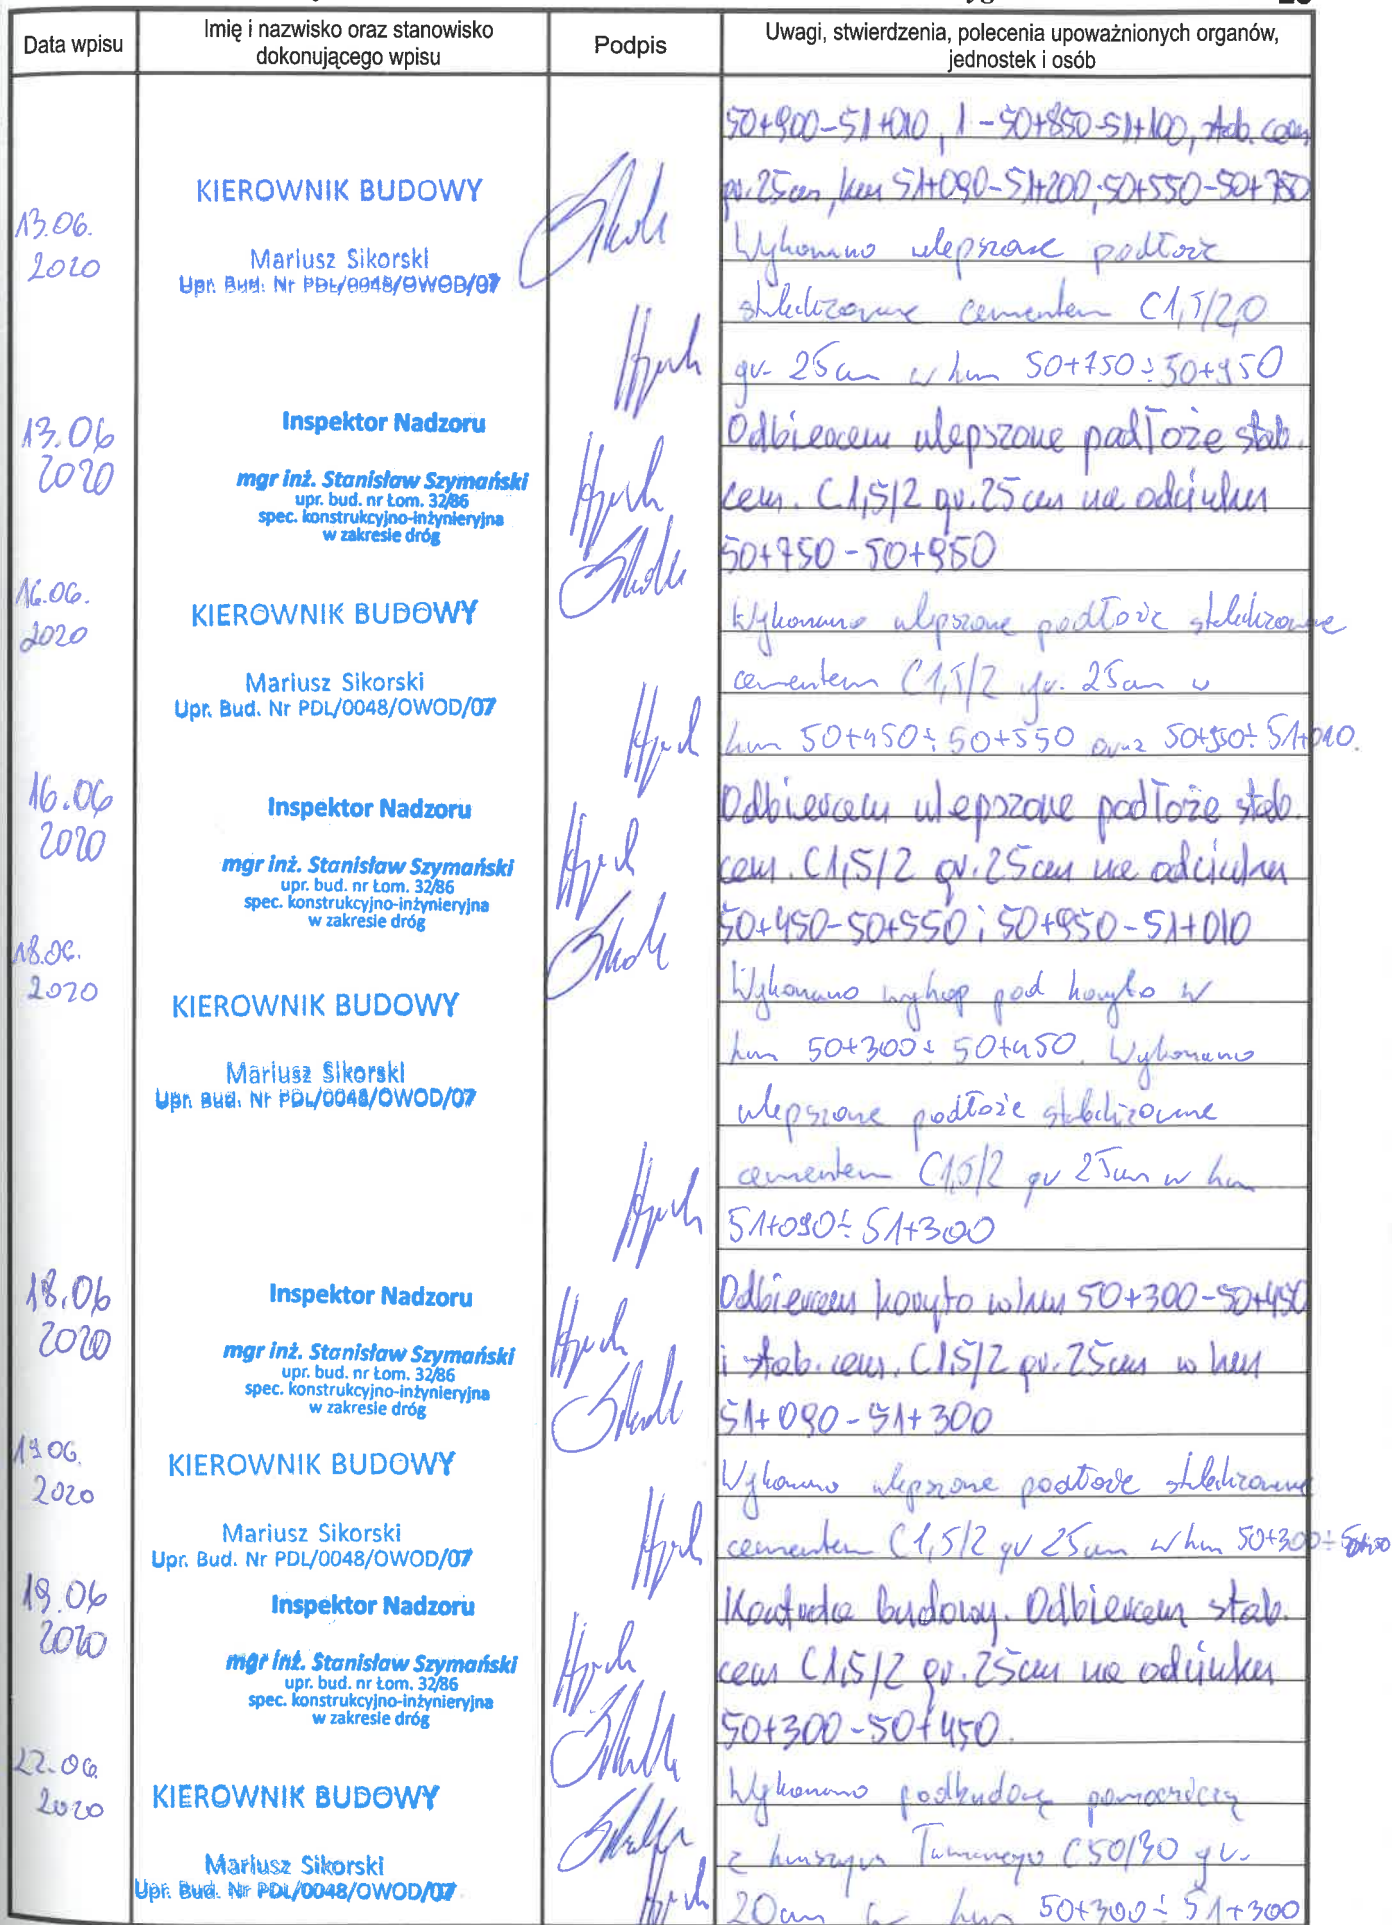 Data wpisu
Imię i nazwisko oraz stanowisko
dokonującego wpisu
Podpis
Uwagi, stwierdzenia, polecenia upoważnionych organów,
jednostek i osób
50+900-51+010, 1-50+850-51+100, stab. cem
gr. 25cm, km 51+090-51+200, 50+550-50+750
13.06.
2020
KIEROWNIK BUDOWY
Mariusz Sikorski
Upr. Bud. Nr PDL/0048/OWOD/07
Wykonano ulepszone podłoże
stabilizowane cementem C1,5/2,0
gr. 25cm w km 50+750÷50+950
13.06
2020
Inspektor Nadzoru
mgr inż. Stanisław Szymański
upr. bud. nr Łom. 32/86
spec. konstrukcyjno-inżynieryjna
w zakresie dróg
Odbieram ulepszone podłoże stab.
cem. C1,5/2 gr. 25cm na odcinku
50+750-50+950
16.06.
2020
KIEROWNIK BUDOWY
Mariusz Sikorski
Upr. Bud. Nr PDL/0048/OWOD/07
Wykonano ulepszone podłoże stabilizowane
cementem C1,5/2 gr. 25cm w
km 50+450÷50+550 oraz 50+950÷51+010.
16.06
2020
Inspektor Nadzoru
mgr inż. Stanisław Szymański
upr. bud. nr Łom. 32/86
spec. konstrukcyjno-inżynieryjna
w zakresie dróg
Odbieram ulepszone podłoże stab.
cem. C1,5/2 gr. 25cm na odcinku
50+450-50+550 i 50+950-51+010
18.06.
2020
KIEROWNIK BUDOWY
Mariusz Sikorski
Upr. Bud. Nr PDL/0048/OWOD/07
Wykonano wykop pod koryto w
km 50+300÷50+450. Wykonano
ulepszone podłoże stabilizowane
cementem C1,5/2 gr 25cm w km
51+090÷51+300
18.06
2020
Inspektor Nadzoru
mgr inż. Stanisław Szymański
upr. bud. nr Łom. 32/86
spec. konstrukcyjno-inżynieryjna
w zakresie dróg
Odbieram koryto w km 50+300-50+450
i stab. cem. C1,5/2 gr. 25cm w km
51+090-51+300
19.06.
2020
KIEROWNIK BUDOWY
Mariusz Sikorski
Upr. Bud. Nr PDL/0048/OWOD/07
Wykonano ulepszone podłoże stabilizowane
cementem C1,5/2 gr 25cm w km 50+300÷
19.06
2020
Inspektor Nadzoru
mgr inż. Stanisław Szymański
upr. bud. nr Łom. 32/86
spec. konstrukcyjno-inżynieryjna
w zakresie dróg
Kontrola budowy. Odbieram stab.
cem C1,5/2 gr. 25cm na odcinku
50+300-50+450.
22.06.
2020
KIEROWNIK BUDOWY
Mariusz Sikorski
Upr. Bud. Nr PDL/0048/OWOD/07
Wykonano podbudowę pomocniczą
z kruszywa łamanego C50/30 gr.
20cm w km 50+300÷51+300